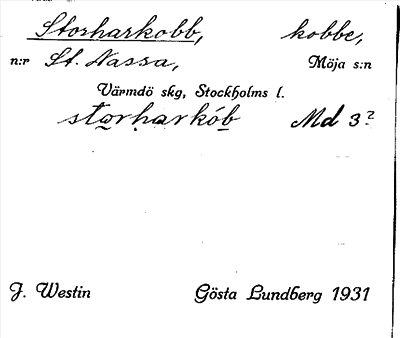 Storharkobb, kobbe,
n:r St. Nassa, Möja s:n
Värmdö skg, Stockholms l.
storharkób Md 3?
J. Westin Gösta Lundberg 1931